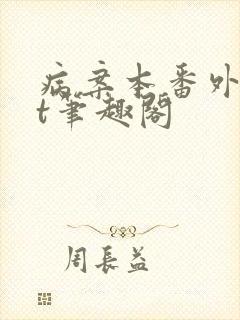 病案本番外
t笔趣阁
周長益